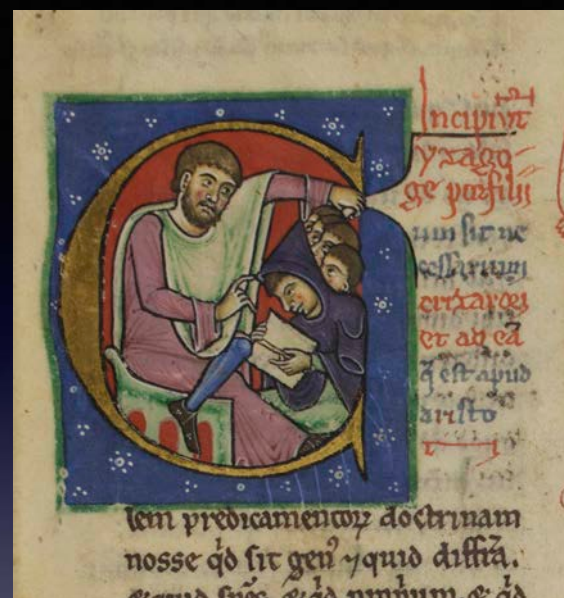 Incipiut
ysago-
ge porfilii
um sit ne
cessarium
crixaroy
et ad eā
q̄ est apud
aristo
lem predicamentoꝝ doctrinam
nosse qd sit gen⁹ ⁊ quid diffīa.